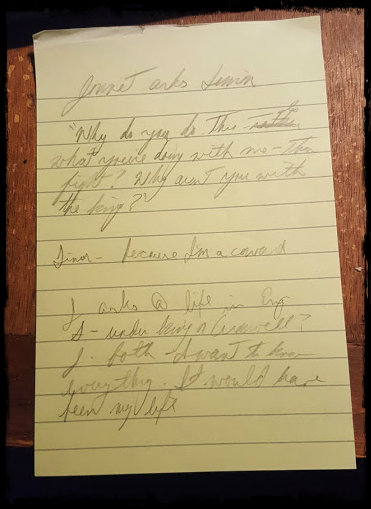 Jennet asks Simon
"Why do you do this rather
what you're doing with me – the
fight? Why aren't you with
the king?"
Simon – because I'm a coward
J asks @ life in Eng
S – under king or Cromwell?
J. both – I want to know
everything. It would have
been my life